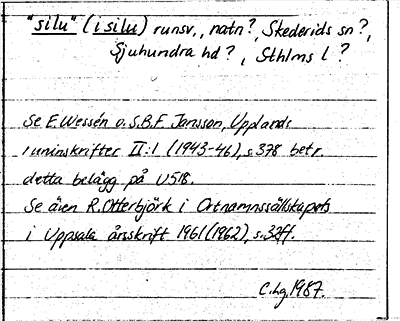 "silu" (i silu) runsv., natn?, Skederids sn?,
Sjuhundra hd?, Sthlms l?
Se E. Wessén o. S.B.F. Jansson, Upplands
runinskrifter II:1 (1943-46), s. 378 betr.
detta belägg på U 518.
Se även R. Otterbjörk i Ortnamnssällskapets
i Uppsala årsskrift 1961 (1962), s. 32ff.
C.hg. 1987.